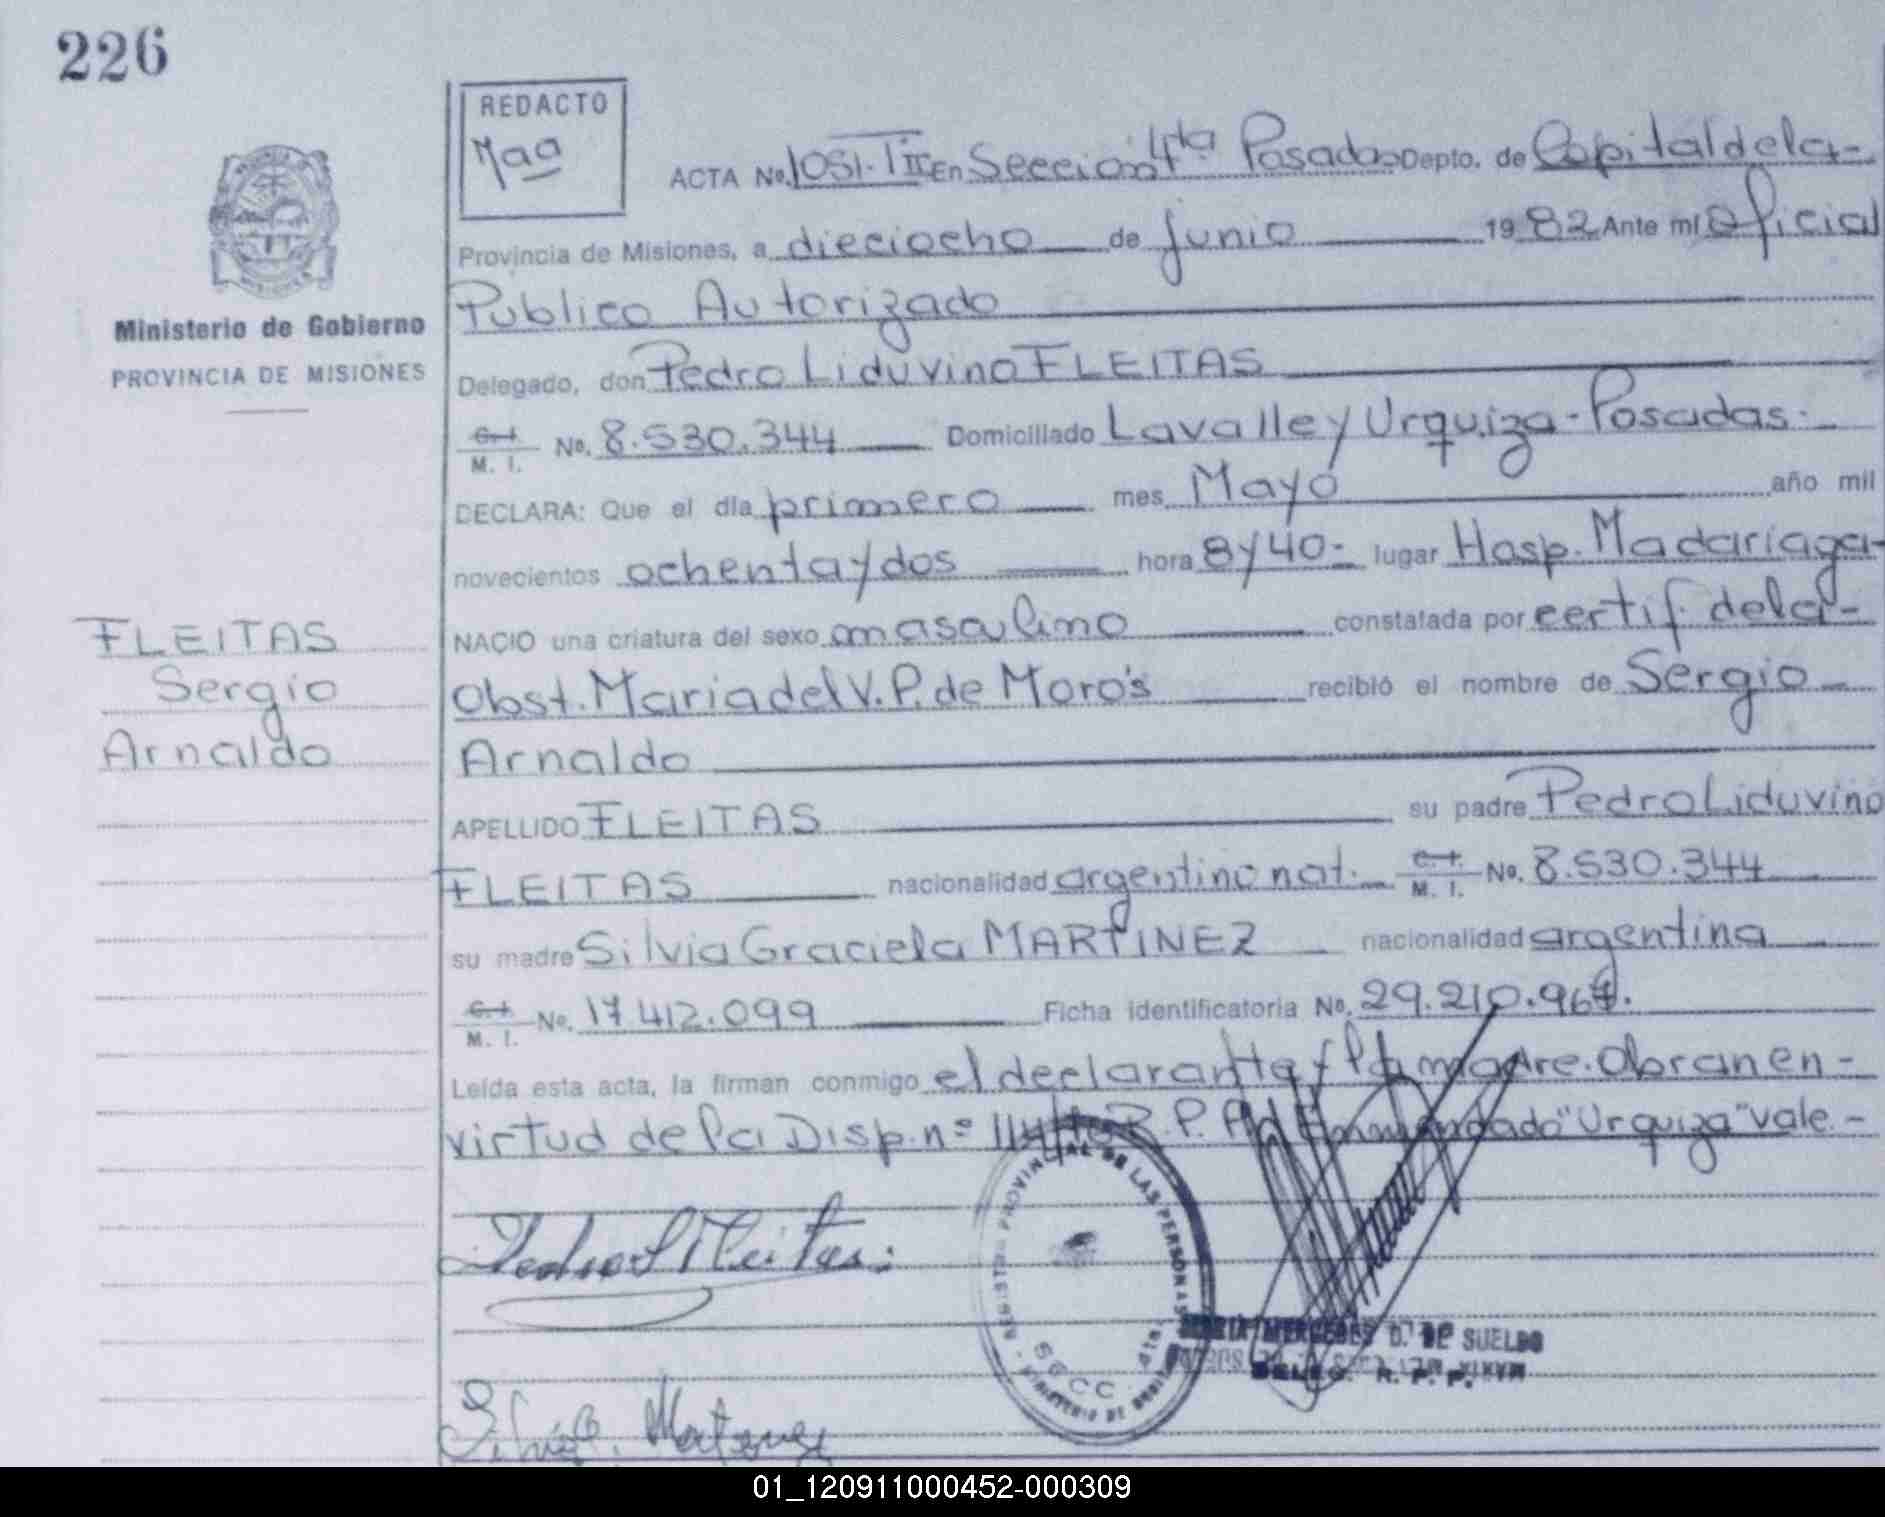 226
REDACTO
Maa
ACTA No. 1051-TIII En Seccion 4ta Posadas Depto. de Capital de la-
Provincia de Misiones, a dieciocho de junio 1982 Ante mi Oficial
Publico Autorizado
Ministerio de Gobierno
PROVINCIA DE MISIONES
Delegado, don Pedro Liduvino FLEITAS
C. I. / M. I. No. 8.530.344 Domiciliado Lavalle y Urquiza - Posadas.-
DECLARA: Que el día primero mes Mayo año mil
novecientos ochenta y dos hora 8 y 40- lugar Hosp. Madariaga-
FLEITAS
Sergio
Arnaldo
NACIO una criatura del sexo masculino constatada por certif. de la-
Obst. Maria del V. P. de Moro's recibió el nombre de Sergio
Arnaldo
APELLIDO FLEITAS su padre Pedro Liduvino
FLEITAS nacionalidad argentino nat. C. I. / M. I. No. 8.530.344
su madre Silvia Graciela MARTINEZ nacionalidad argentina
C. I. / M. I. No. 17.412.099 Ficha identificatoria No. 29.210.964.
Leída esta acta, la firman conmigo el declarante y la madre. Obran en-
virtud de la Disp. nº R. P. Enmendado "Urquiza" vale.-
Pedro L Fleitas.
REGISTRO PROVINCIAL DE LAS PERSONAS
SECC. 4ta.
MINISTERIO DE
MARIA MERCEDES D. DE SUELDO
DELEG. R. P. P.
Silvia G. Martinez
01_120911000452-000309